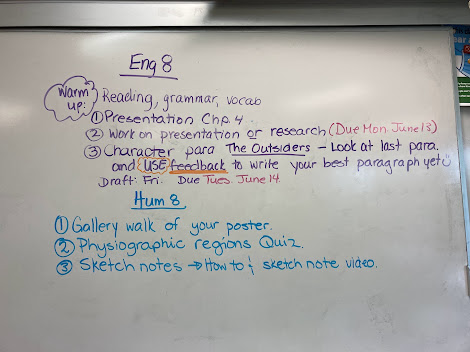 Eng 8
Warm up: Reading, grammar, vocab
① Presentation Chp. 4
② Work on presentation or research (Due Mon. June 13)
③ Character para The Outsiders – Look at last para.
and USE feedback to write your best paragraph yet☺
Draft: Fri. Due Tues. June 14.
Hum 8
① Gallery walk of your poster.
② Physiographic regions Quiz.
③ Sketch notes → How to & sketch note video.